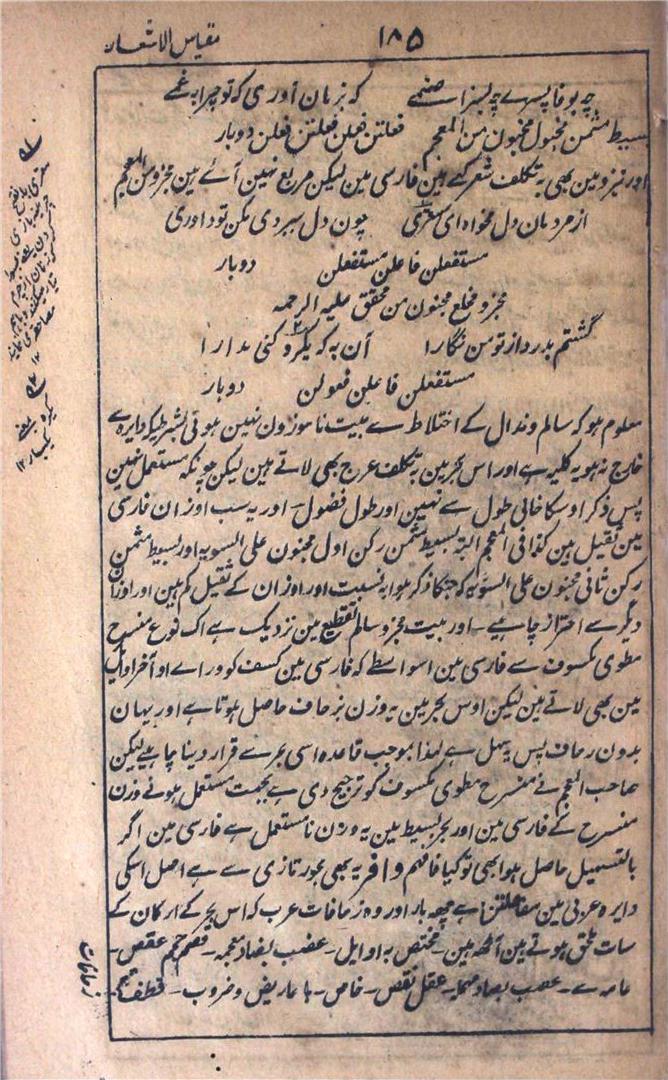 ۱۸۵
مقیاس الاشعار
چہ بوفا پسرے چہ بسزا صنمی کہ بزمان آوری کہ تو چرا بہ غمے
بسیط مثمن مخبول مخبون من المعجم فعلتن فعلن فعلتن فعلن دوبار
اور نیز و مین بھی بہ تکلف شعر کہے ہین فارسی مین لیکن مربع نہین آئے ہین مجزو من المعجم
از مردمان دل مخواہ ای سعتری چون دل سبردی مکن تو داوری
مستفعلن فاعلن مستفعلن دوبار
مجزو مخلع مخبون من محقق علیہ الرحمہ
گشتم بدرد از تو من نگارا آن بہ کہ یکرو کنی مدارا
مستفعلن فاعلن فعولن دوبار
معلوم ہو کہ سالم و ندال کے اختلاط سے بیت ناموزون نہین ہوتی بشرطیکہ دایرہ سے
خارج نہو یہ کلیہ ہے اور اس بحر مین بہ تکلف عرج بھی لاتے ہین لیکن چونکہ مستعمل نہین
پس ذکر اوسکا خالی طول سے نہین اور طول فضول۔ اور یہ سب اوزان فارسی
مین ثقیل ہین کذا فی المعجم البتہ بسیط مثمن رکن اول مخبون علی السویہ اور بسیط مثمن
رکن ثانی مخبون علی السویہ کہ جنکا ذکر ہوا بہ نسبت اور اوزان کے ثقیل کم ہین اور اوزان
دیگر سے احتراز چاہیے۔ اور بیت مجزو سالم التقطیع مین نزدیک ہے اک نوع منسرح
مطوی مکسوف سے فارسی مین اسواسطے کہ فارسی مین کسف کو ورائے اواخر ابیات
مین بھی لاتے ہین لیکن اوس بحر مین یہ وزن بزحاف حاصل ہوتا ہے اور یہان
بدون زحاف پس یہ سہل ہے لہذا بموجب قاعدہ اسی بحر سے قرار دینا چاہیے لیکن
صاحب المعجم نے منسرح مطوی مکسوف کو ترجیح دی ہے بجہت مستعمل ہونے وزن
منسرح کے فارسی مین اور بحر بسیط مین یہ وزن نا مستعمل ہے فارسی مین اگر
بالتسہیل حاصل ہوا بھی تو کیا فافہم وافر یہ بھی بحور تازی سے ہے اصل اسکی
دایرہ عربی مین مفاعلتن ہے چھہ بار اور وہ زحافات عرب کہ اس بحر کے ارکان کے
سات ملحق ہوتے ہین آٹھہ ہین۔ مختص بہ اوایل۔ عضب بضاد معجمہ۔ قصم جمم عقص۔
عامہ۔ عصب بصاد مہملہ۔ عقل نقص۔ خاص۔ با عاریض و ضروب۔ قطف
زحافات
یکرو یعنے
یکسار ۱۲